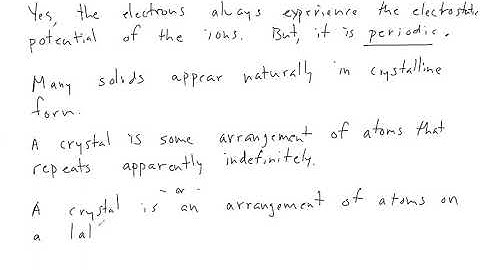 Yes, the electrons always experience the electrostatic
potential of the ions. But, it is periodic.
Many solids appear naturally in crystalline
form.
A crystal is some arrangement of atoms that
repeats apparently indefinitely.
- or -
A crystal is an arrangement of atoms on
a lat